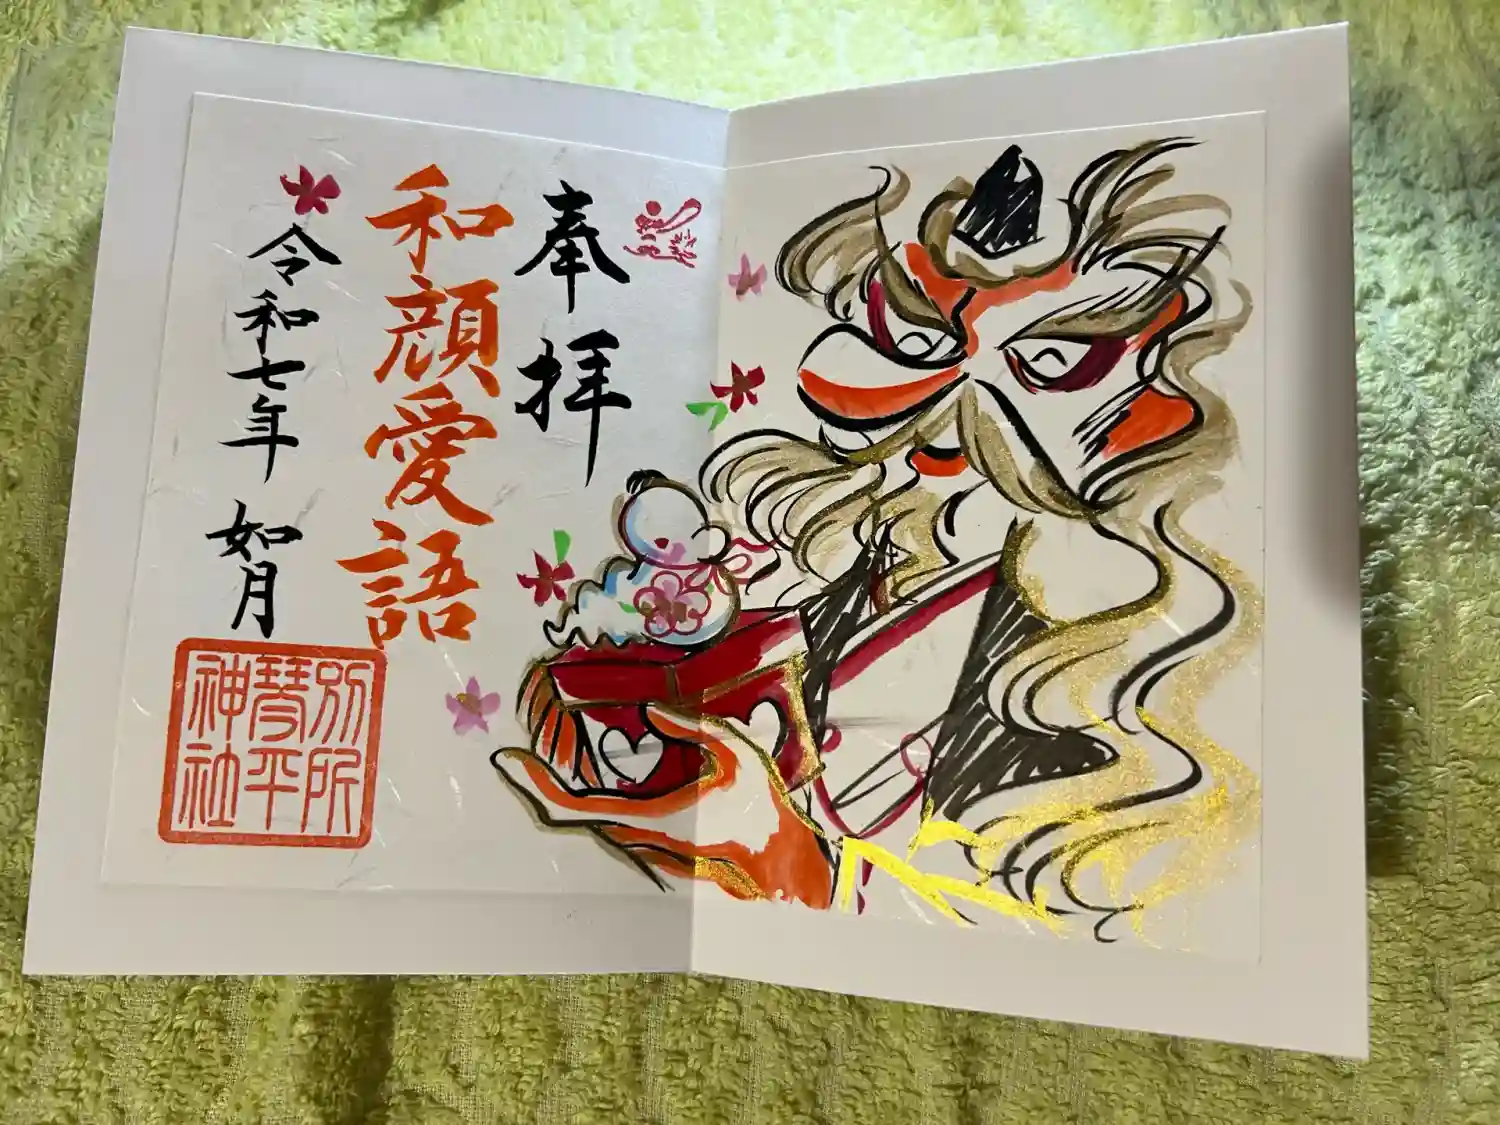 奉拝
和顔愛語
令和七年 如月
別所
琴平
神社